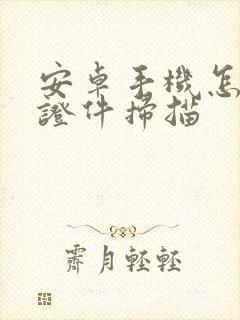 安卓手機怎
證件掃描
霽月輕輕